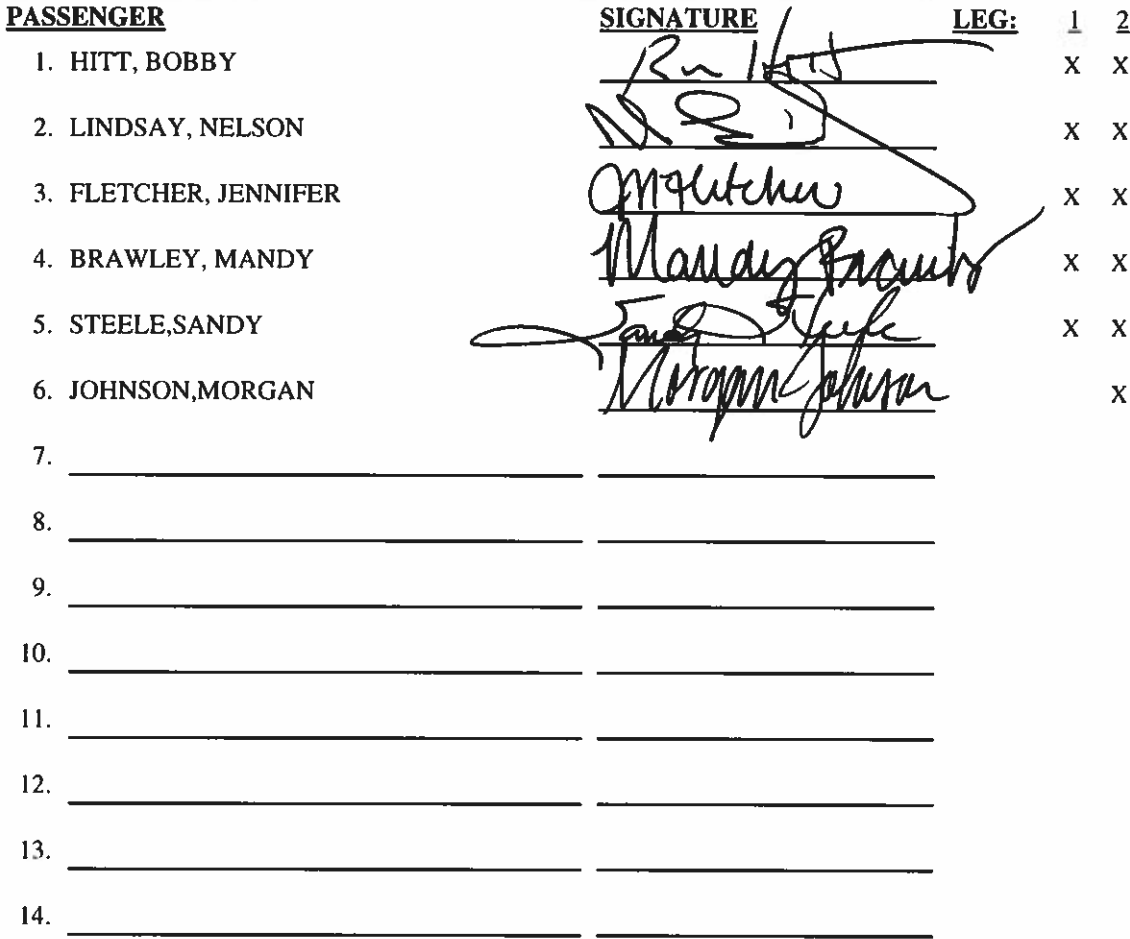 PASSENGER SIGNATURE LEG: 1 2
1. HITT, BOBBY X X
2. LINDSAY, NELSON X X
3. FLETCHER, JENNIFER JMFletcher X X
4. BRAWLEY, MANDY Mandy Brawley X X
5. STEELE,SANDY Sandy Steele X X
6. JOHNSON,MORGAN Morgan Johnson X
7.
8.
9.
10.
11.
12.
13.
14.